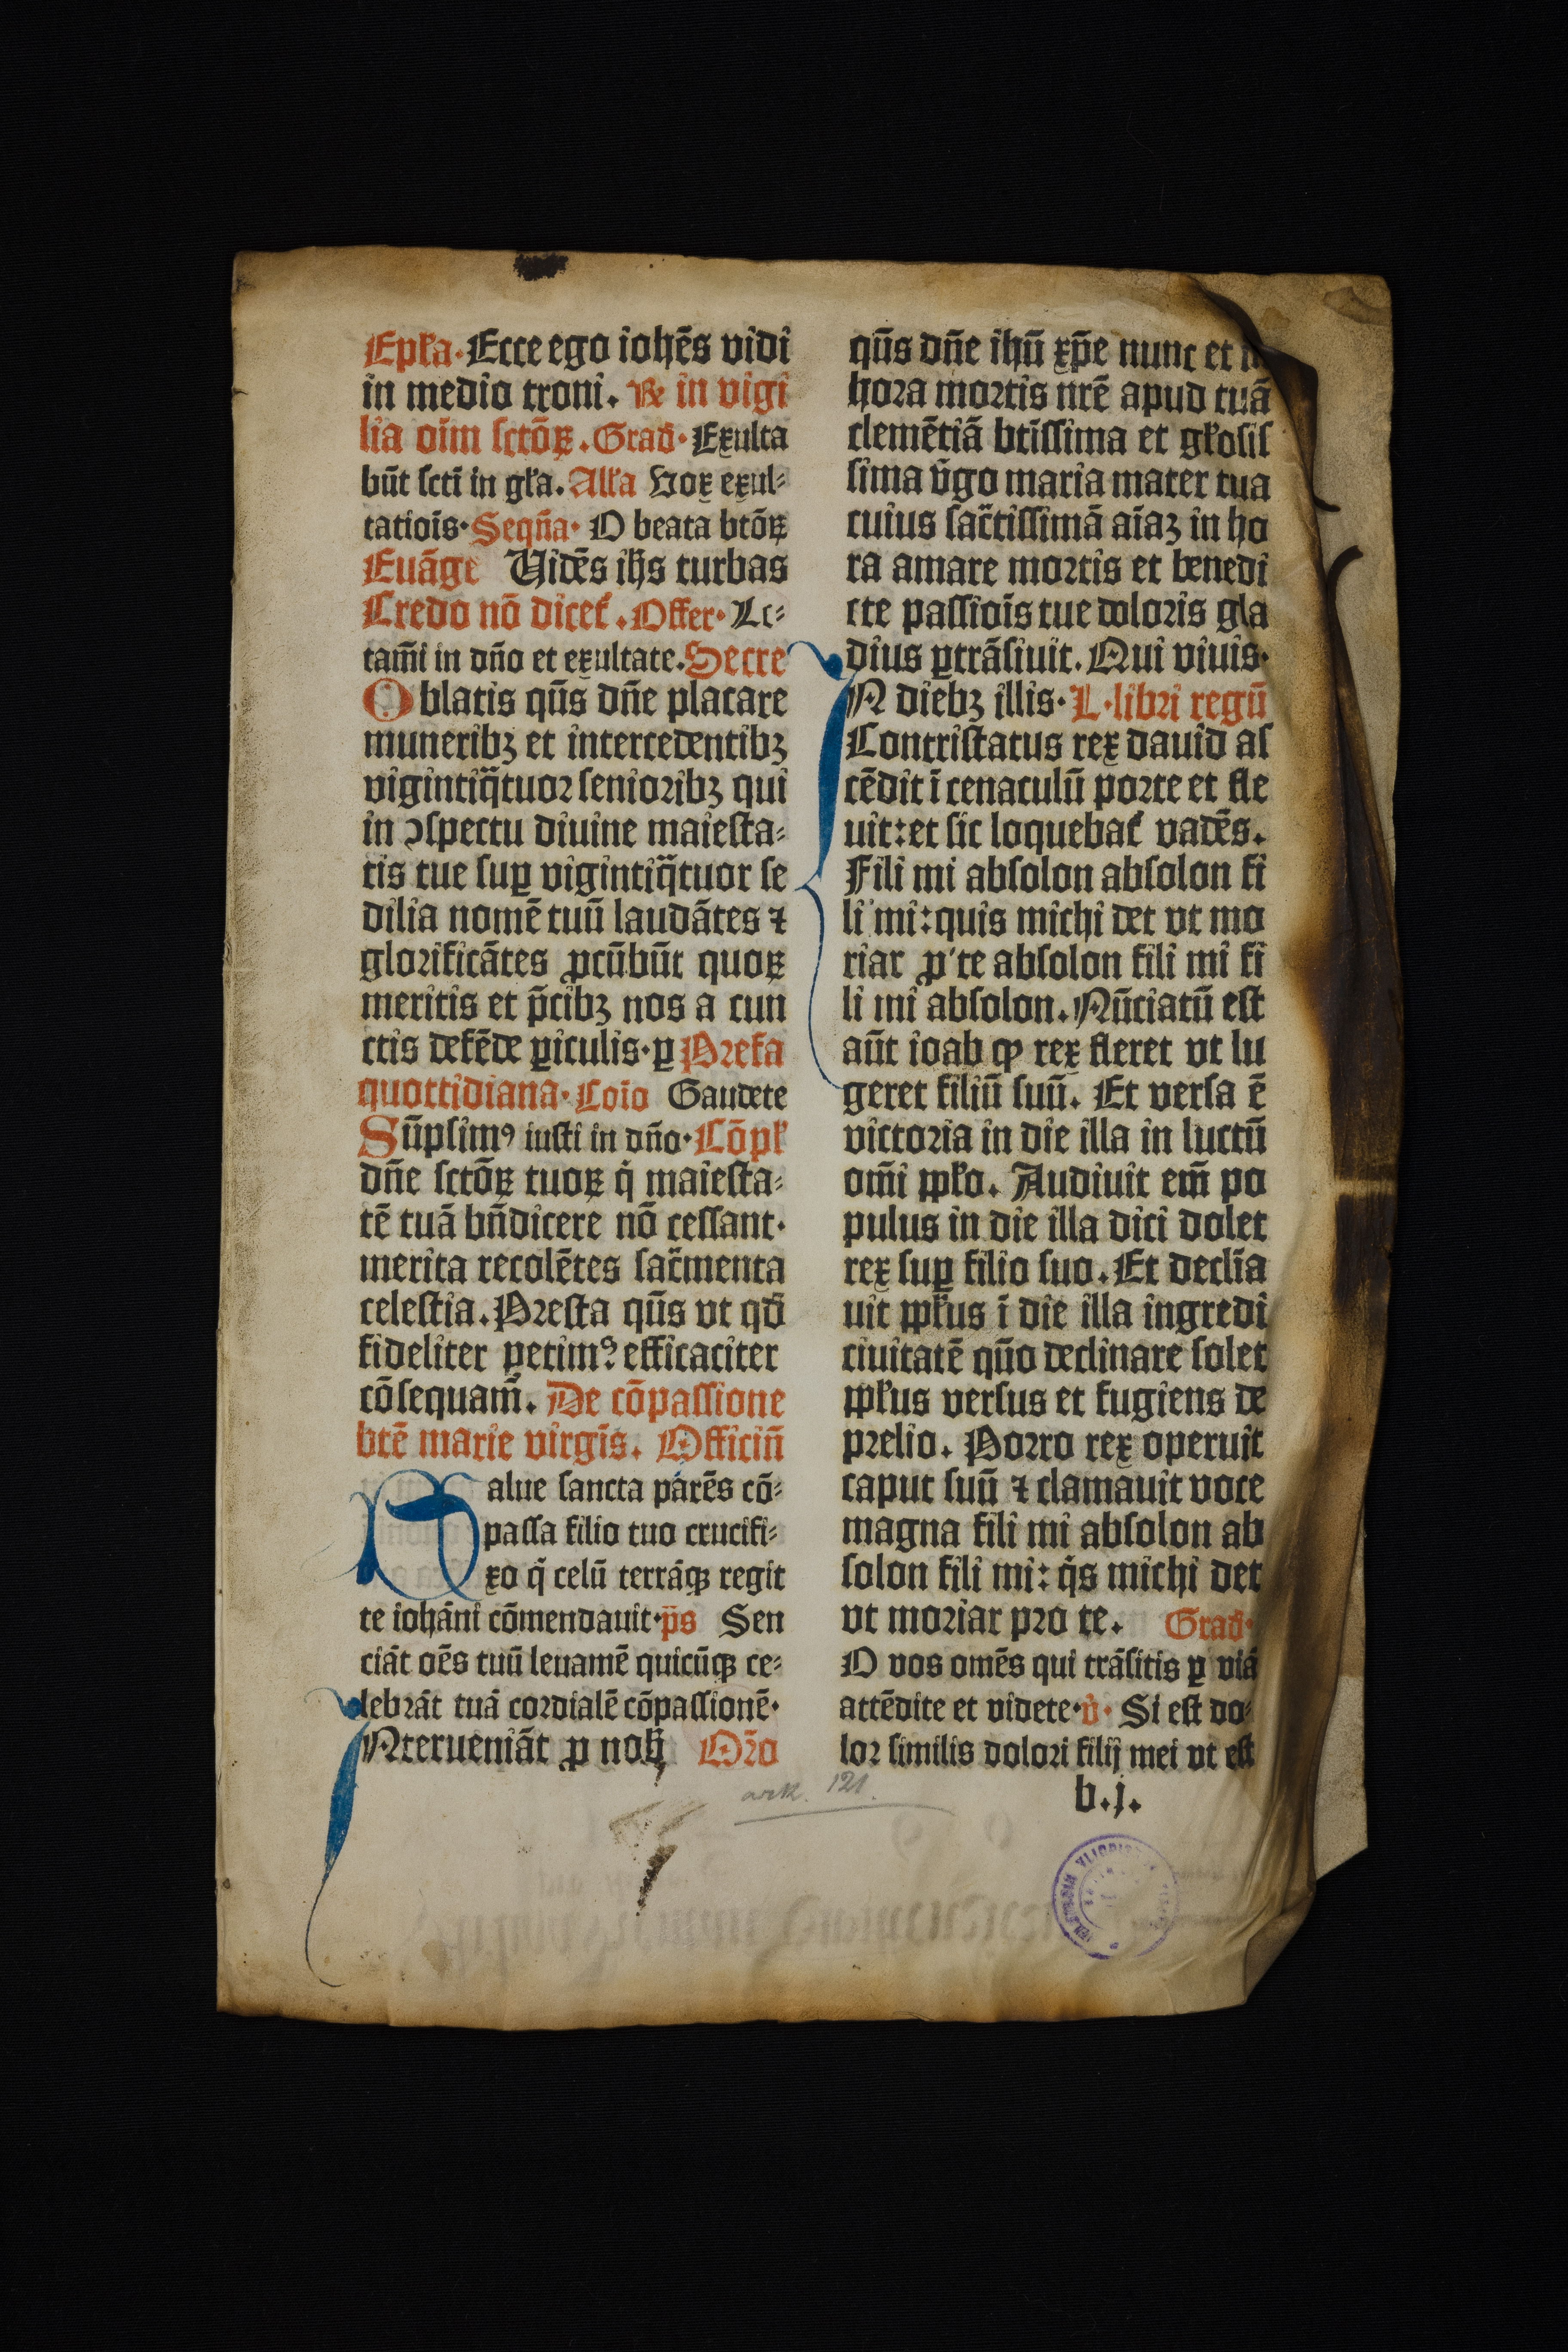 Epl̄a· Ecce ego iohēs vidi
in medio troni. Rͤ in vigi
lia oīm sctōꝝ. Grad̄· Exulta
būt sctī in gl̄a. All̄a Vox exul-
tatiōis· Seqn̄a· O beata btōꝝ
Euāge Vidēs ihs̄ turbas
Credo nō dicet᷑. Offer· Le-
tam̄i in dn̄o et exultate. Secre
Oblatis qūs dn̄e placare
muneribꝫ et intercedentibꝫ
vigintiq̄tuor senioribꝫ qui
in ꝯspectu diuine maiesta-
tis tue suꝑ vigintiq̄tuor se
dilia nomē tuū laudātes ⁊
glorificātes ꝓcūbūt quoꝝ
meritis et p̄cibꝫ nos a cun
ctis defēde ꝑiculis· ꝑ Prefa
quottidiana· Cōio Gaudete
Sūpsimꝰ iusti in dn̄o· Cōpl̄
dn̄e sctōꝝ tuoꝝ q̇ maiesta-
tē tuā bn̄dicere nō cessant·
merita recolētes sac̄menta
celestia. Presta qūs vt qd̄
fideliter petimꝰ efficaciter
cōsequam̄. De cōpassione
btē marie virgīs. Officiū
Salue sancta parēs cō-
passa filio tuo crucifi-
xo q̄ celū terrāqꝫ regit
te iohāni cōmendauit· p̄s Sen
ciāt oēs tuū leuamē quicūqꝫ ce-
lebrāt tuā cordialē cōpassionē·
INterueniāt ꝓ nob̄ Or̄o
qūs dn̄e ihū xp̄e nunc et
hora mortis nrē apud tuā
clemētiā btīssima et gl̄osis
sima v̄go maria mater tua
cuius sac̄tissimā aīaꝫ in ho
ra amare mortis et benedi
cte passiōis tue doloris gla
dius ꝑtrāsiuit. Qui viuis·
IN diebꝫ illis· L· libri regū
Contristatus rex dauid as
cēdit ī cenaculū porte et fle
uit: et sic loquebat᷑ vadēs.
Fili mi absolon absolon fi
li mi: quis michi det vt mo
riar ꝓ te absolon fili mi fi
li mi absolon. Nūciatū est
aūt ioab ꝙ rex fleret vt lu
geret filiū suū. Et versa ē
victoria in die illa in luctū
om̄i ppl̄o. Audiuit em̄ po
pulus in die illa dici dolet
rex suꝑ filio suo. Et declīa
uit ppl̄us ī die illa ingredi
ciuitatē qūo declinare solet
ppl̄us versus et fugiens de
prelio. Porro rex operuit
caput suū ⁊ clamauit voce
magna fili mi absolon ab
solon fili mi: q̇s michi det
vt moriar pro te. Grad̄·
O vos omēs qui trāsitis ꝑ viā
attēdite et videte· v̇· Si est do-
lor similis dolori filij mei vt est
b.j.
ark. 121.